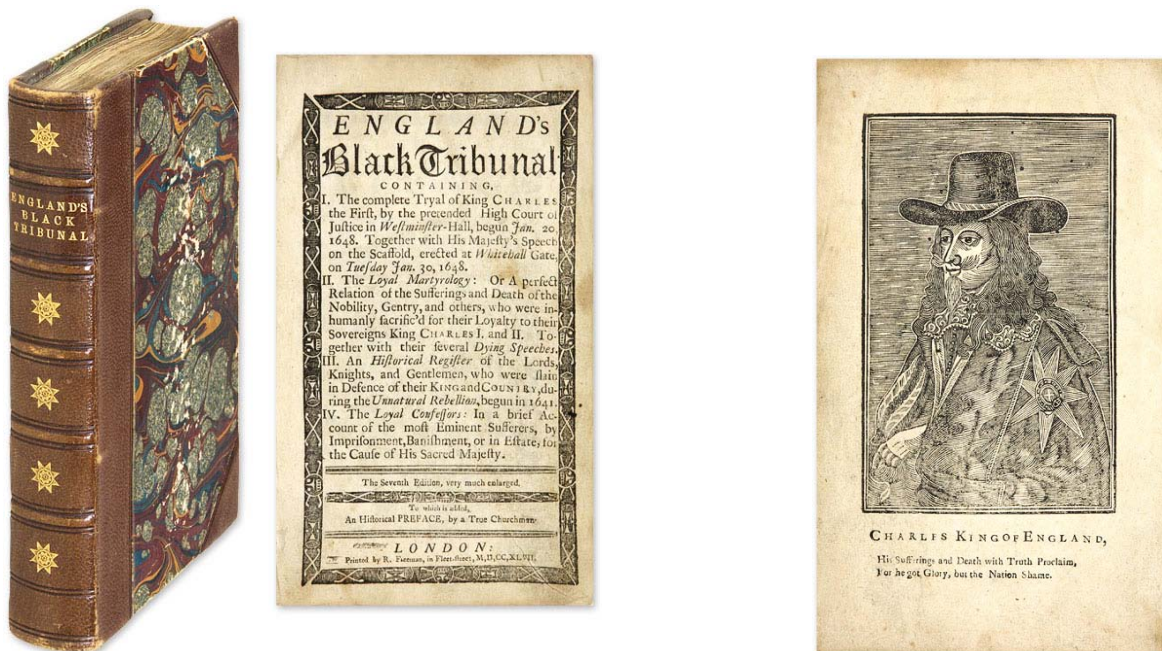 ENGLAND'S
BLACK
TRIBUNAL
ENGLAND's
Black Tribunal
CONTAINING,
I. The complete Tryal of King CHARLES
the First, by the pretended High Court of
Justice in Westminster-Hall, begun Jan. 20,
1648. Together with His Majesty's Speech
on the Scaffold, erected at Whitehall Gate,
on Tuesday Jan. 30, 1648.
II. The Loyal Martyrology: Or A perfect
Relation of the Sufferings and Death of the
Nobility, Gentry, and others, who were in-
humanly sacrific'd for their Loyalty to their
Sovereigns King CHARLES I. and II. To-
gether with their several Dying Speeches.
III. An Historical Register of the Lords,
Knights, and Gentlemen, who were slain
in Defence of their KING and COUNTRY, du-
ring the Unnatural Rebellion, begun in 1641.
IV. The Loyal Confessors: In a brief Ac-
count of the most Eminent Sufferers, by
Imprisonment, Banishment, or in Estate, for
the Cause of His Sacred Majesty.
The Seventh Edition, very much enlarged.
To which is added,
An Historical PREFACE, by a True Churchman.
LONDON:
Printed by R. Freeman, in Fleet-street, M,DCC,XLVII.
CHARLES KING OF ENGLAND,
His Sufferings and Death with Truth Proclaim,
For he got Glory, but the Nation Shame.